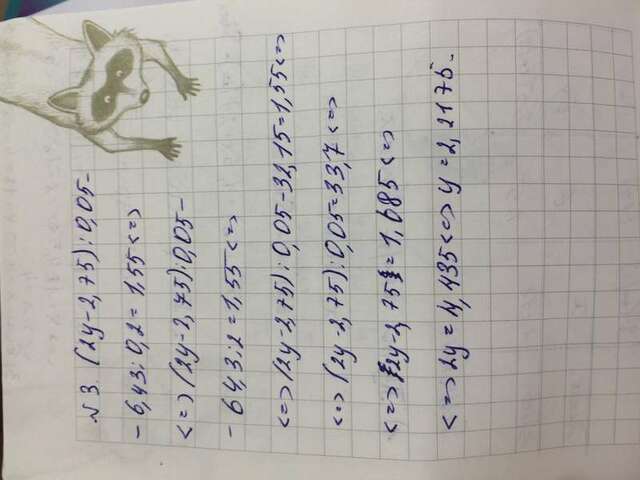 №3. (2y-2,75):0,05-
-6,43:0,2=1,55<=>
<=>(2y-2,75):0,05-
-64,3:2=1,55<=>
<=>(2y-2,75):0,05-32,15=1,55<=>
<=>(2y-2,75):0,05=33,7<=>
<=>2y-2,75=1,685<=>
<=>2y=4,435<=>y=2,2175.